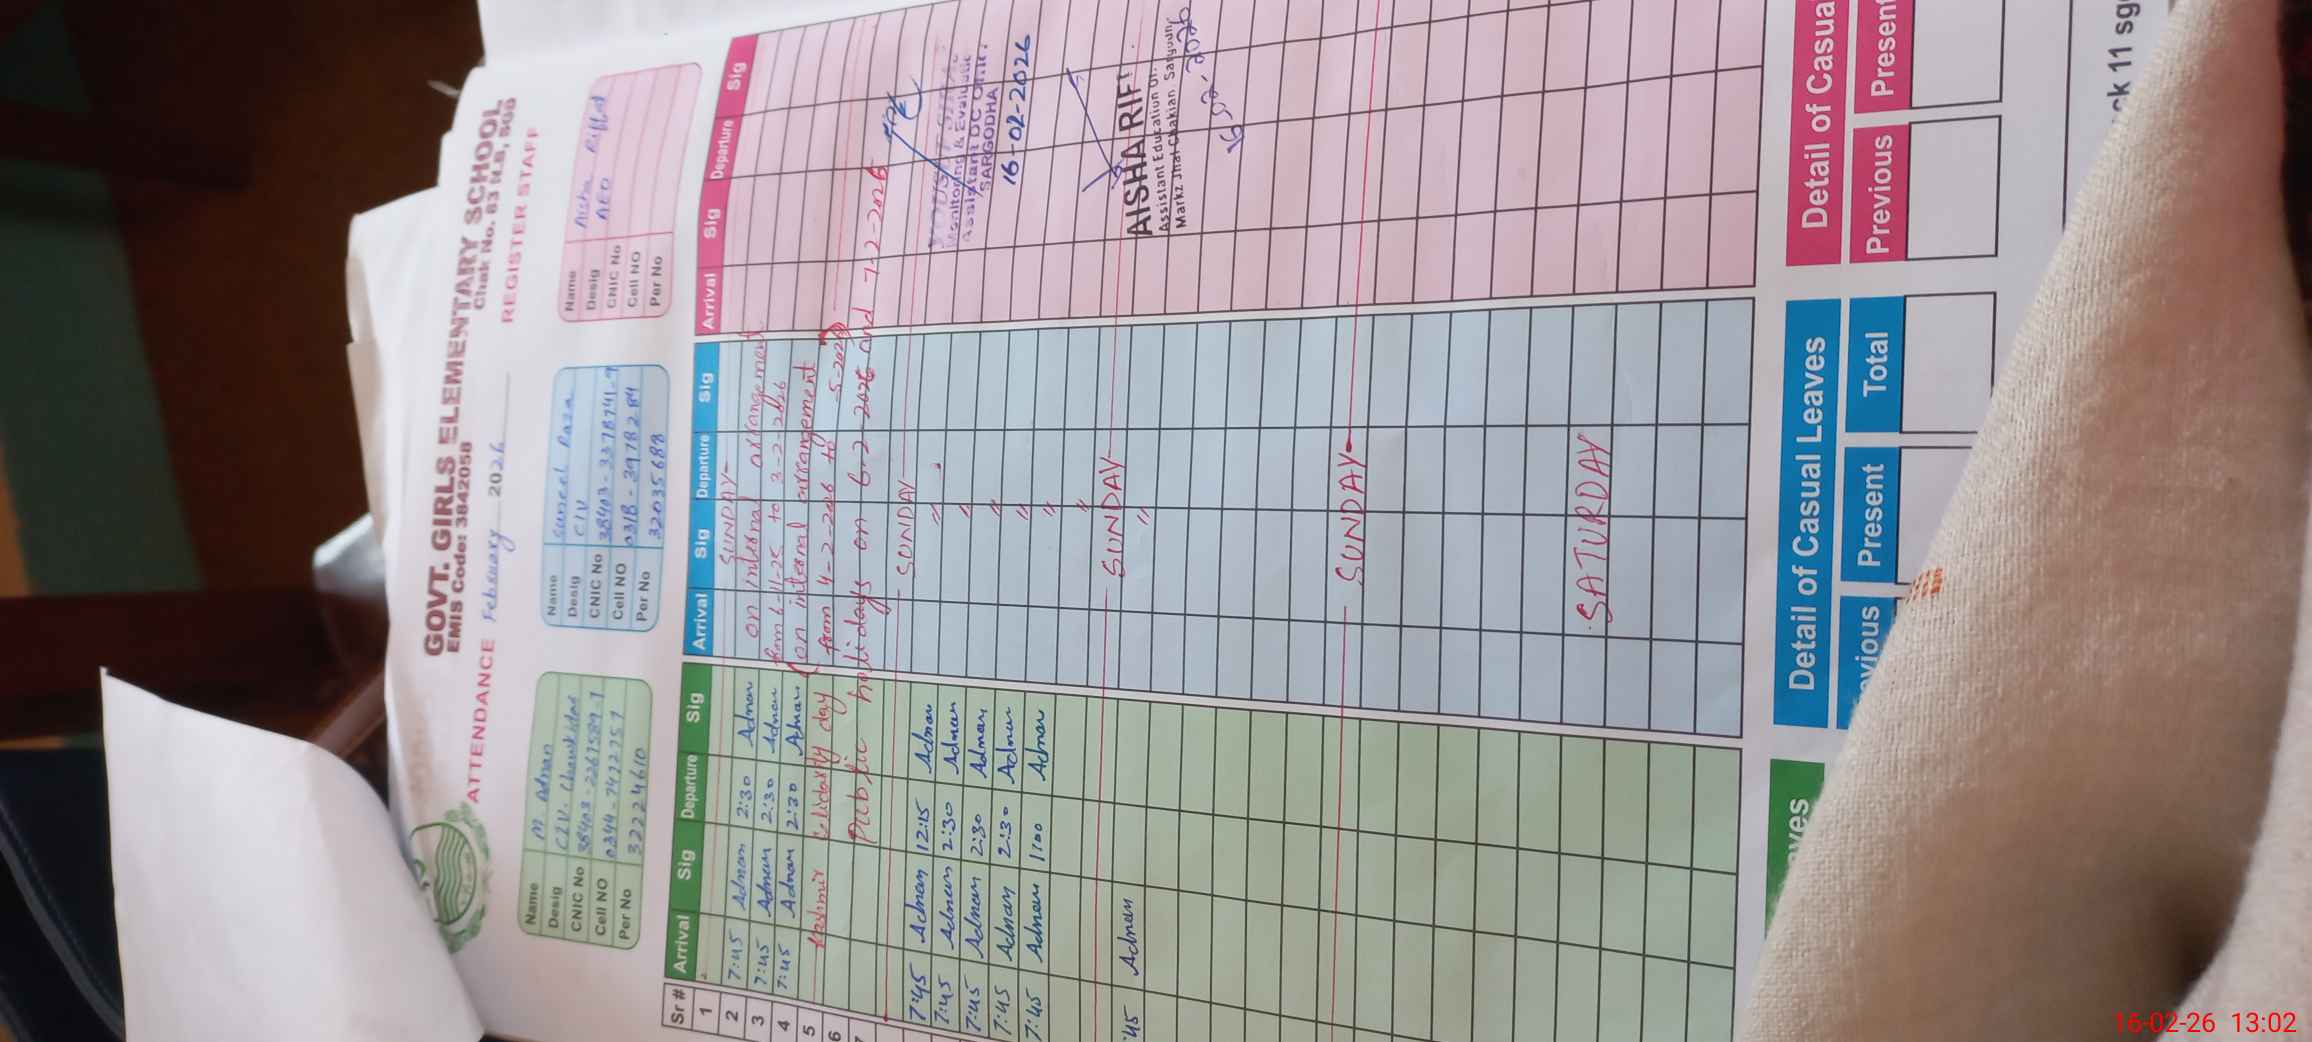 GOVT. GIRLS ELEMENTARY SCHOOL
EMIS Code: 3842058 Chak No. 83 N.B, SGD
ATTENDANCE February 2026 REGISTER STAFF
Name M. Adnan
Desig
CNIC No
Cell NO
Per No 32224610
Name
Desig CIV
CNIC No
Cell NO
Per No 32035688
Name Aisha Riffat
Desig AEO
CNIC No
Cell NO
Per No
Sr # Arrival Sig Departure Sig Arrival Sig Departure Sig Arrival Sig Departure Sig
1 SUNDAY
2 7:45 Adnan 2:30 Adnan on internal arrangement
3 7:45 Adnan 2:30 Adnan from 6-11-25 to 3-2-2026
4 7:45 Adnan 2:30 Adnan (on internal arrangement
5 Kashmir solidarity day from 4-2-2026 to
6 Public holidays on 6-2-2026 and 7-2-2026
7
SUNDAY
7:45 Adnan 12:15 Adnan "
7:45 Adnan 2:30 Adnan "
7:45 Adnan 2:30 Adnan "
7:45 Adnan 2:30 Adnan "
7:45 Adnan 1:00 Adnan "
"
SUNDAY
:45 Adnan "
SUNDAY
SATURDAY
Monitoring & Evaluation
Assistant DC Office
SARGODHA
16-02-2026
AISHA RIFF
Assistant Education Of.
Markz Jhal Chakian. Sargoun
16-02-2026
Detail of Casual Leaves
Previous Present Total
Detail of Casua
Previous Present
aves
ck 11 sg
16-02-26 13:02